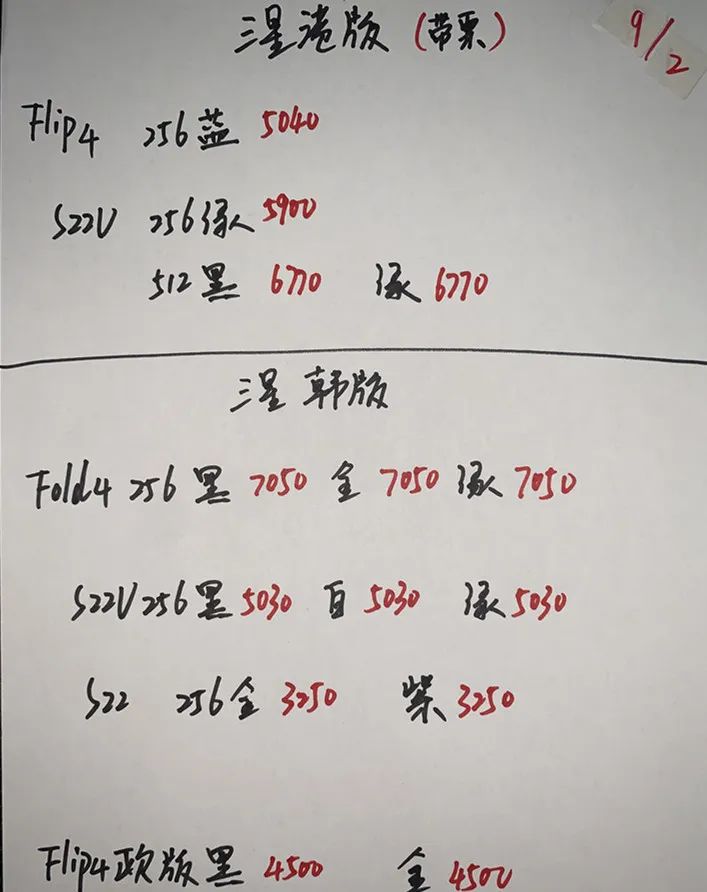 三星港版（带票）
9/2
Flip4 256 蓝 5040
S22U 256 绿 5900
512 黑 6770 绿 6770
三星 韩版
Fold4 256 黑 7050 金 7050 绿 7050
S22U 256 黑 5030 白 5030 绿 5030
S22 256 金 3250 紫 3250
Flip4 欧版 黑 4500 金 4500